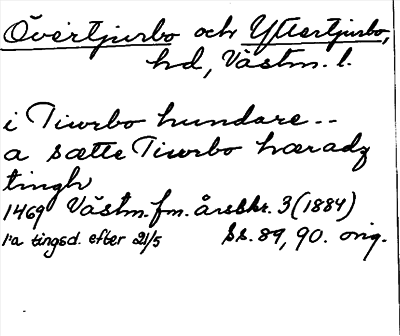 Övertjurbo och Yttertjurbo,
hd, Västm. l.
i Tiwrbo hundare --
a sætte Tiwrbo hæradz
tingh
1469 Västm. fm. årsskr. 3 (1884)
1:a tingsd. efter 21/5 ss. 89, 90. orig.